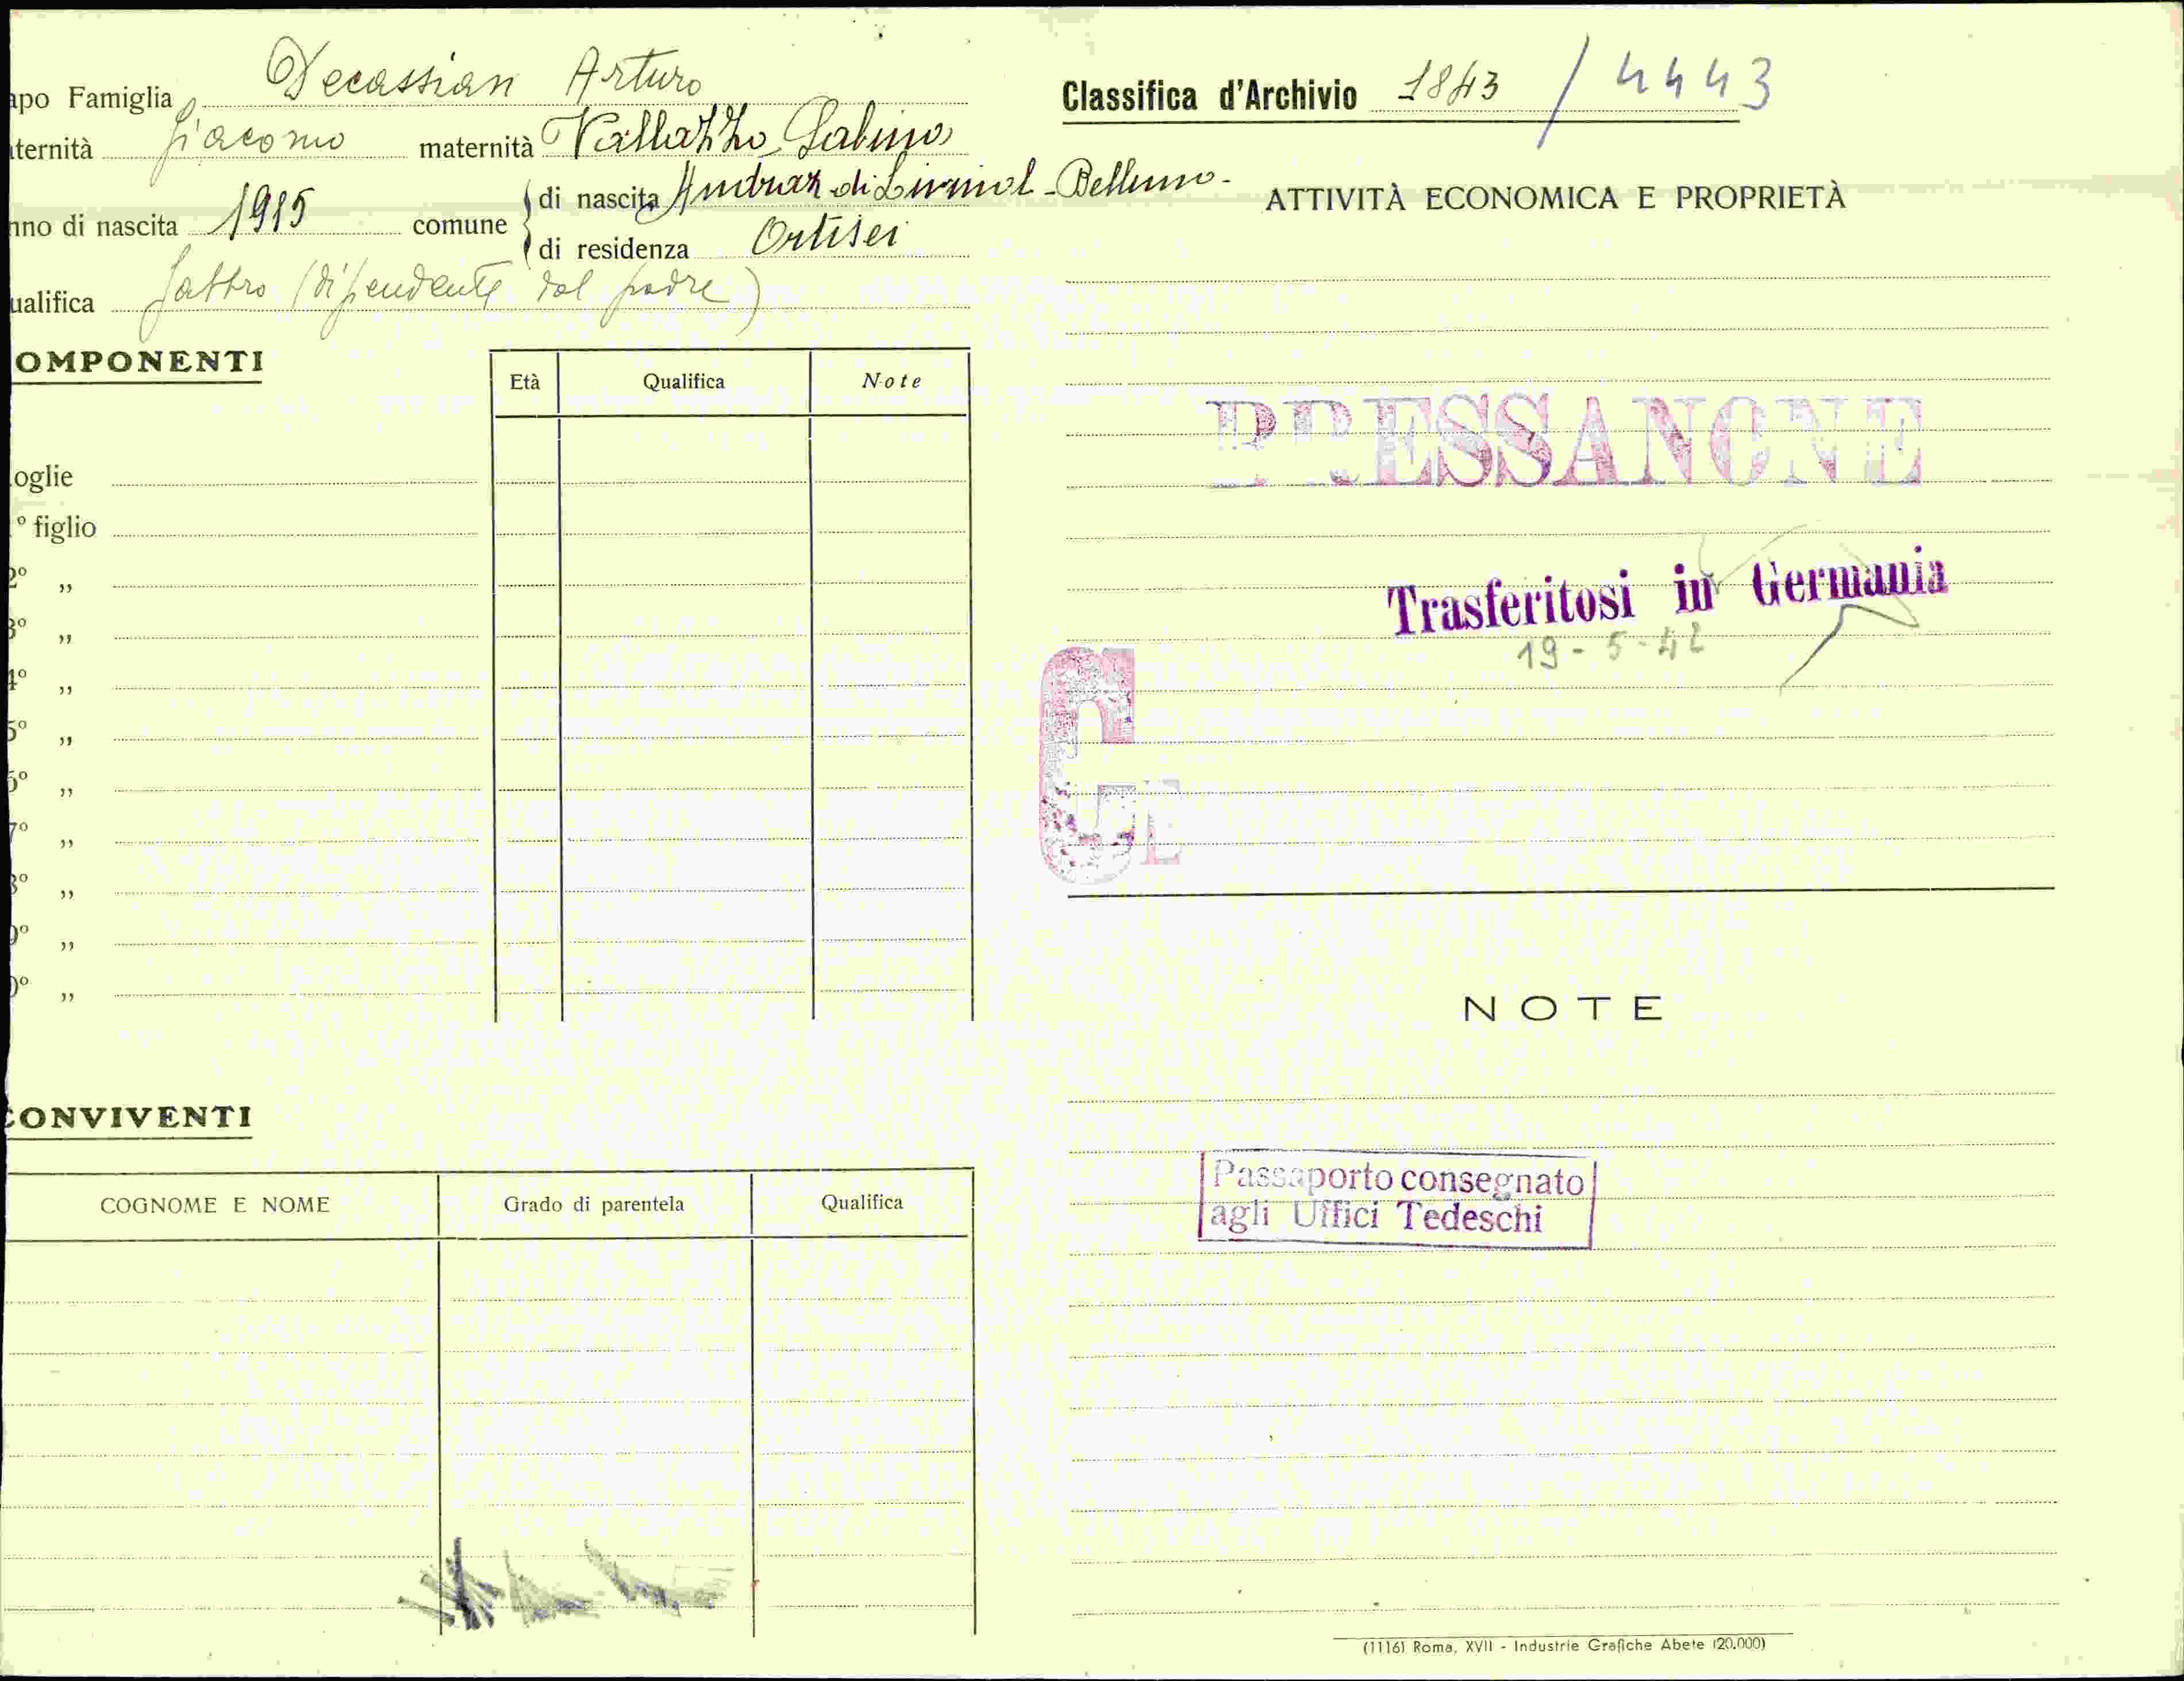 apo Famiglia Decassian Arturo
Classifica d'Archivio 1843 / 4443
aternità Giacomo maternità Vallazzo Sabina
nno di nascita 1915 comune
di nascita Andraz di Livinal - Belluno -
di residenza Ortisei
ualifica (dipendente dal padre)
ATTIVITÀ ECONOMICA E PROPRIETÀ
OMPONENTI
Età Qualifica Note
oglie
° figlio
2° „
3° „
4° „
5° „
6° „
7° „
8° „
9° „
0° „
PRESSANONE
Trasferitosi in Germania
19-5-42
G E
NOTE
CONVIVENTI
COGNOME E NOME Grado di parentela Qualifica
Passaporto consegnato
agli Uffici Tedeschi
(1116) Roma, XVII - Industrie Grafiche Abete (20.000)